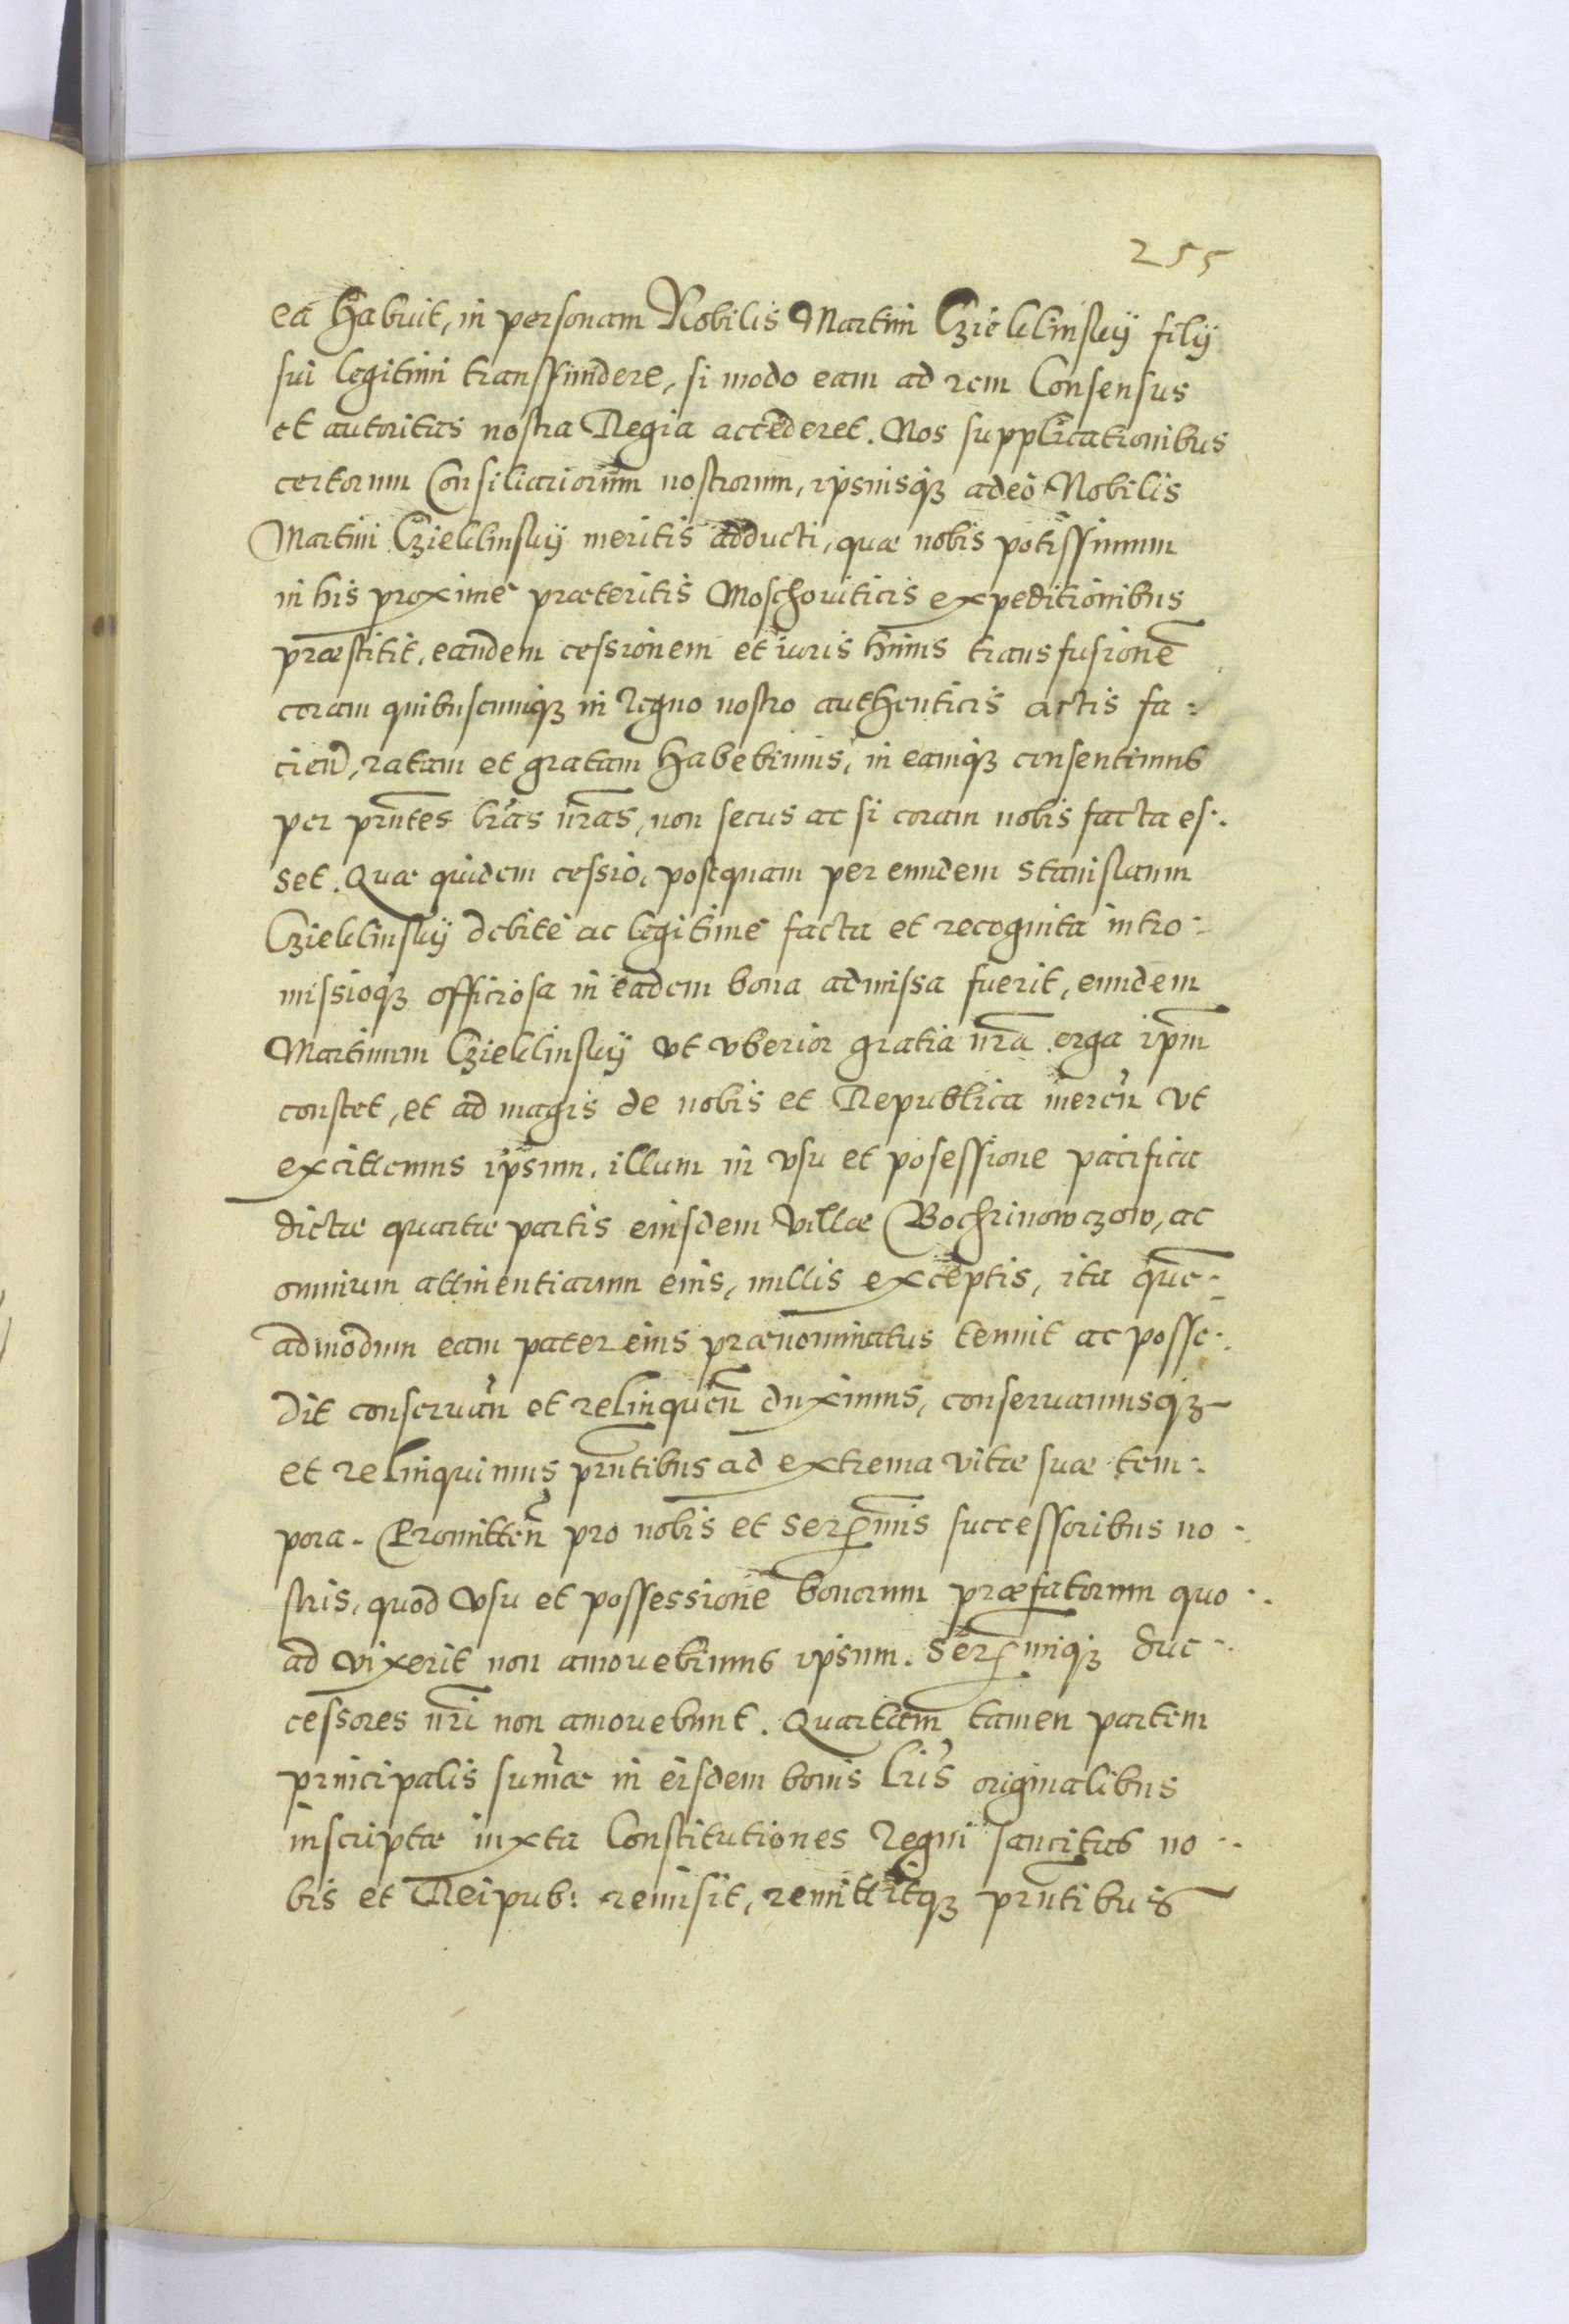 255
ea habuit, in personam Nobilis Martini Czieklinskij filij
sui legitimi transfundere, si modo eam ad rem Consensus
et autoritas nostra Regia accederet. Nos supplicationibus
certorum Consiliariorum nostrorum, ipsiusq3 adeò Nobilis
Martini Czieklinskij meritis adducti, quæ nobis potissimum
in his proximè præteritis Moschouiticis expeditionibus
præstitit, eandem cessionem et iuris huius transfusionē
coram quibuscunq3 in Regno nostro authenticis actis fa:
ciend, ratam et gratam habebimus, in eamq3 consentimus
per pn̄tes lr̄as nr̄as, non secus ac si coram nobis facta es:
set. Quæ quidem cessio, postquam per eundem Stanislaum
Czieklinskij debitè ac legitimè facta et recognita intro:
missioq3 officiosa in eadem bona admissa fuerit, eundem
Martinum Czieklinskij vt vberior gratia nr̄a erga ip̄m
constet, et ad magis de nobis et Republica meren̄ vt
excittemus ipsum. illum in vsu et posessione pacifica
dictæ quartæ partis eiusdem villæ Bochrinowczow, ac
omnium attinentiarum eius, nullis exceptis, ita quē:
admodum eam pater eius prænominatus tenuit ac posse:
dit conseruan̄ et relinquen̄ duximus, conseruamusq3
et relinquimus pn̄tibus ad extrema vitæ suæ tem:
pora. Promitten̄ pro nobis et Serēmis successoribus no:
stris, quod vsu et possessione bonorum præfatorum quo:
ad vixerit non amouebimus ipsum. Serēmiq3 suc:
cessores nr̄i non amouebunt. Quartam tamen partem
principalis sum̄æ in eisdem bonis lr̄is originalibus
inscriptæ iuxta Constitutiones Regni sancitas no:
bis et Reipub: remisit, remittitq3 pn̄tibus